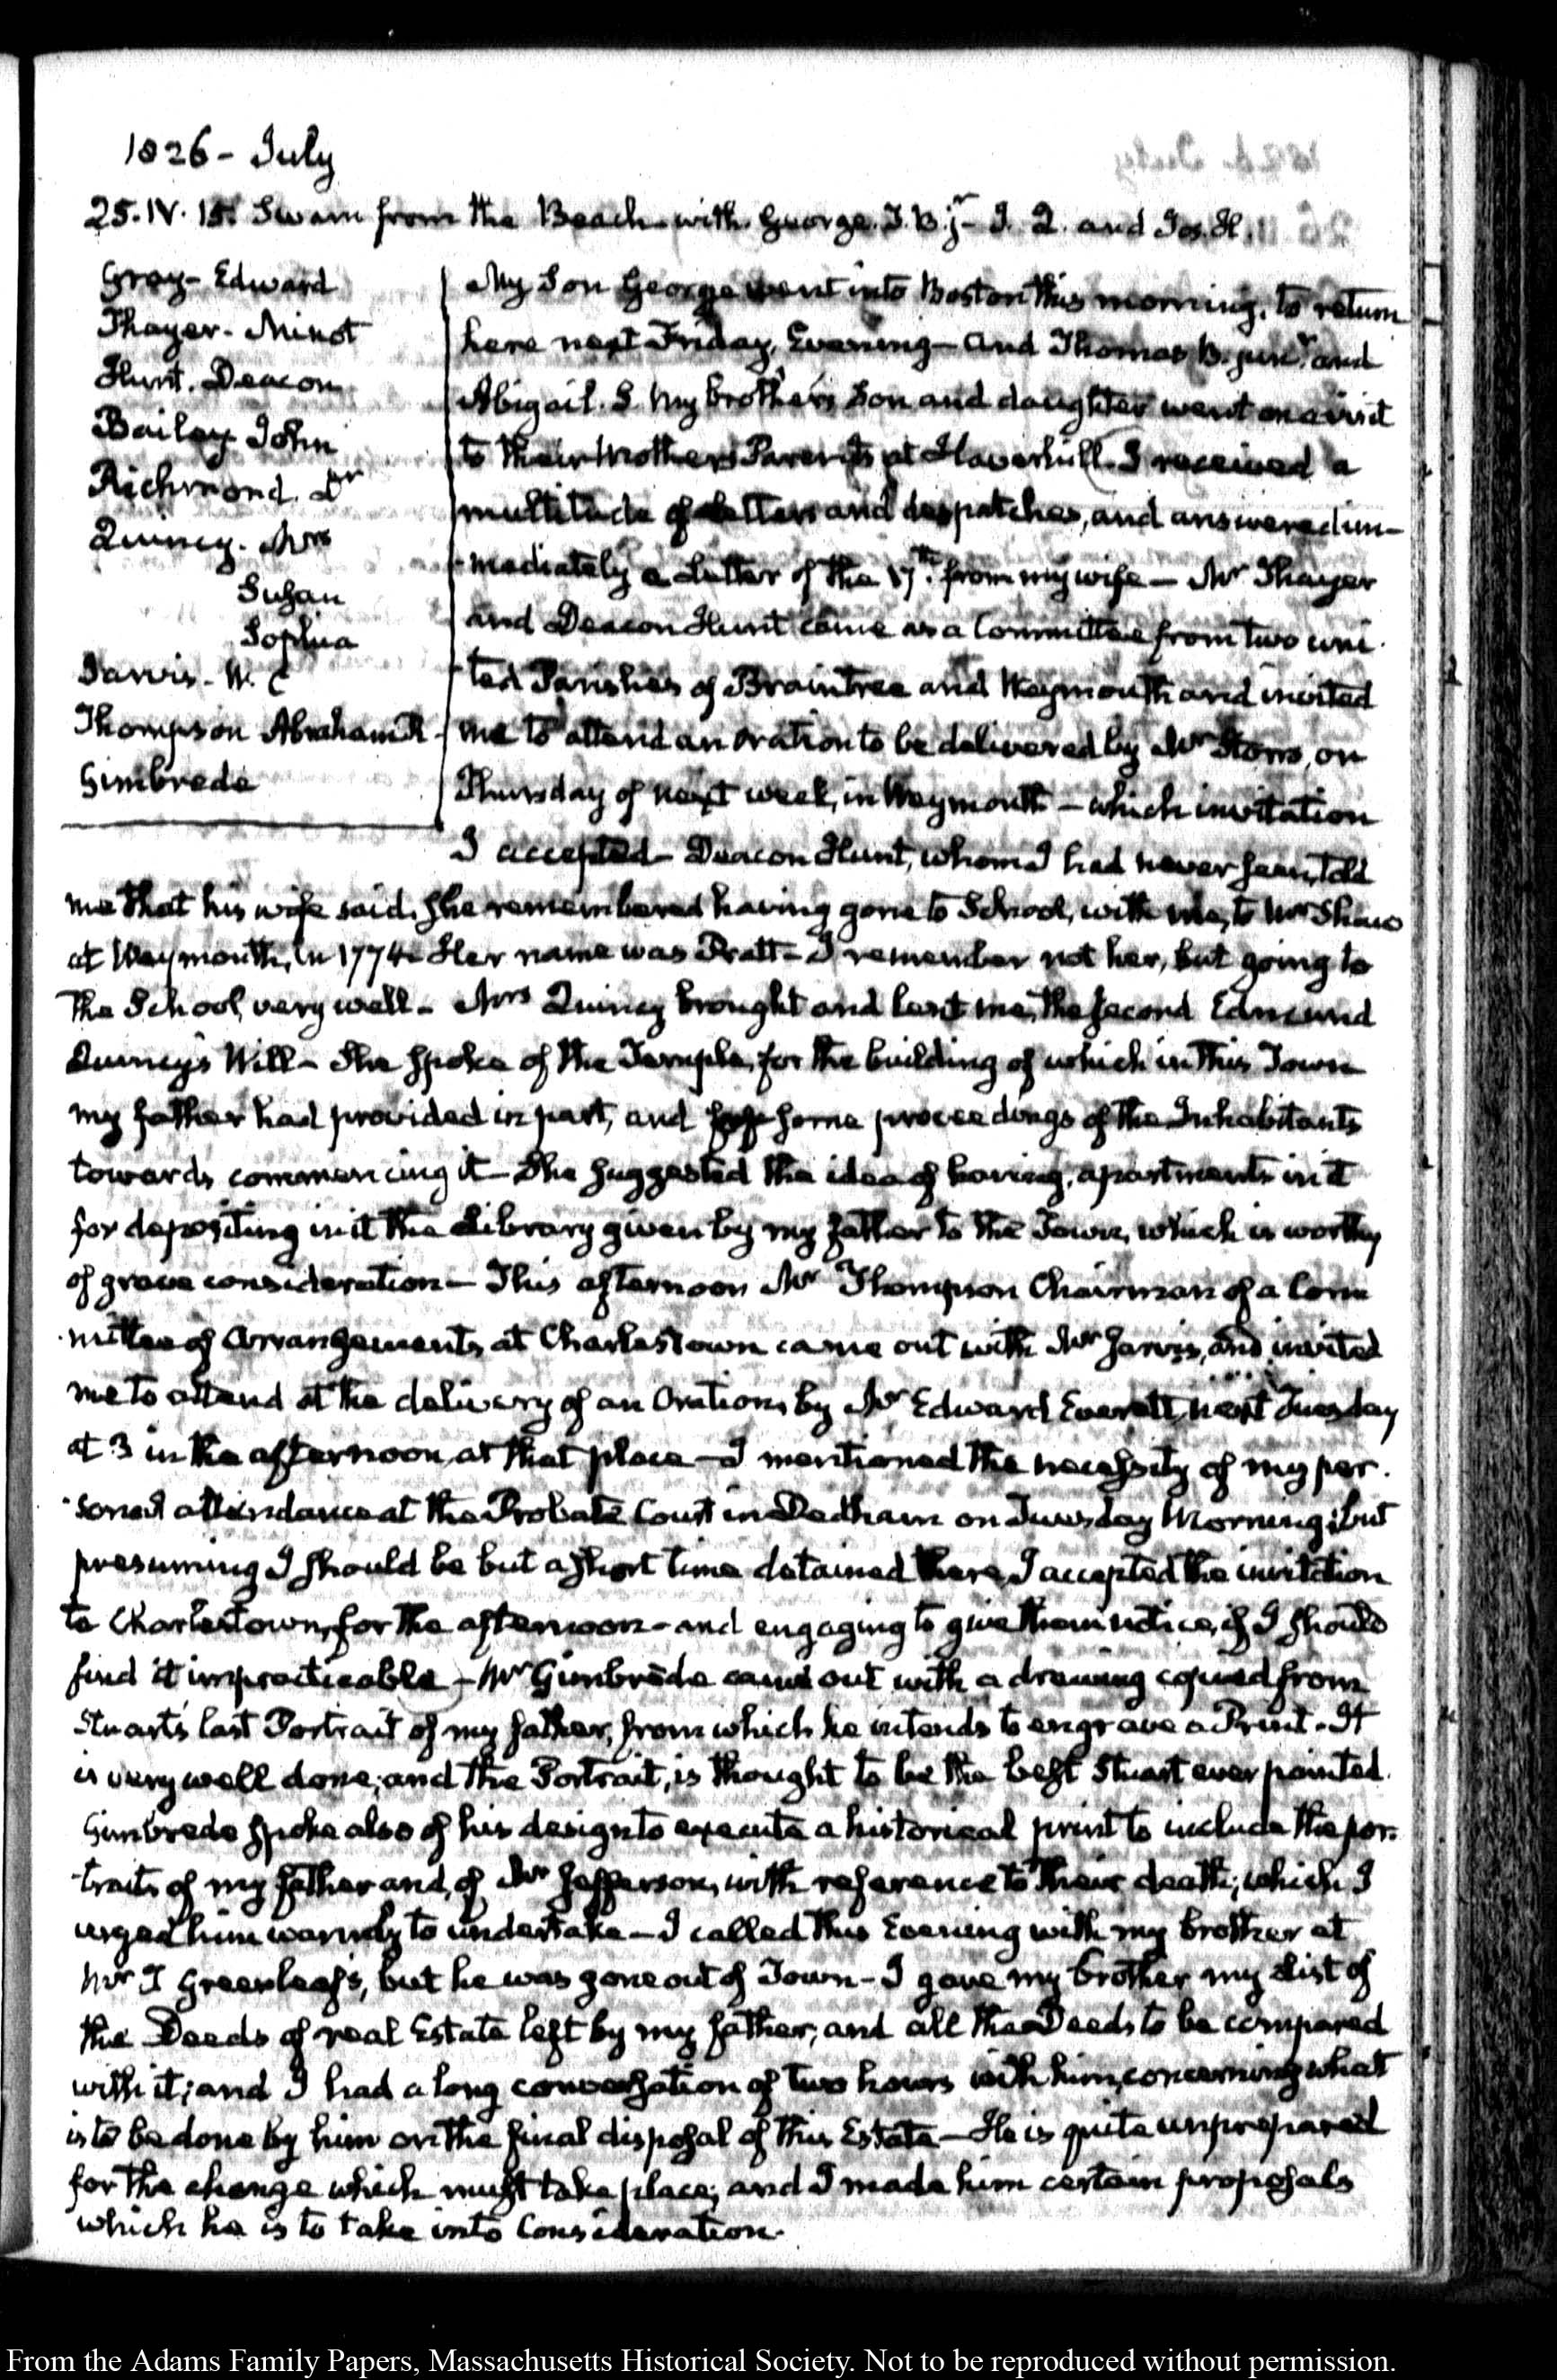 1826 - July
25. IV. 15. Swam from the Beach with George. T. B. jr - J. Q. and Jos. H.
Gray - Edward
Thayer - Minot
Hunt. Deacon
Bailey John
Richmond. Dr
Quincy. Mrs
Susan
Sophia
Jarvis - W. C
Thompson Abraham R.
Gimbrede
My Son George went into Boston this morning, to return
here next Friday, Evening - and Thomas B. junr. and
Abigail. S. my brother's Son and daughter went on a visit
to their Mother's Parents at Haverhill. I received a
multitude of Letters and despatches, and answered im-
-mediately a Letter of the 17th. from my wife - Mr Thayer
and Deacon Hunt came as a Committee from two uni-
-ted Parishes of Braintree and Weymouth and invited
me to attend an oration to be delivered by Mr Storrs, on
Thursday of next week, in Weymouth - which invitation
I accepted - Deacon Hunt, whom I had never seen, told
me that his wife said, she remembered having gone to School, with me, to Mr Shaw
at Weymouth, in 1774. Her name was Pratt - I remember not her, but going to
the School, very well - Mrs Quincy brought and lent me, the second Edmund
Quincy's Will - She spoke of the Temple, for the building of which in this Town
my father had provided in part, and some proceedings of the Inhabitants
towards commencing it - She suggested the idea of having, apartments in it
for depositing in it the Library given by my father to the Town, which is worthy
of grave consideration - This afternoon Mr Thompson Chairman of a Com
-mittee of Arrangements, at Charlestown came out with Mr Jarvis, and invited
me to attend at the delivery of an Oration, by Mr Edward Everett, next Tuesday
at 3 in the afternoon, at that place - I mentioned the necessity of my per-
-sonal attendance at the Probate Court in Dedham on Tuesday Morning; but
presuming I should be but a short time detained there, I accepted the invitation
to Charlestown, for the afternoon - and engaging to give them notice, if I should
find it impracticable - Mr Gimbrede came out with a drawing copied from
Stuart's last Portrait of my father, from which he intends to engrave a Print. It
is very well done; and the Portrait, is thought to be the best Stuart ever painted.
Gimbrede spoke also of his design to execute a historical print to include the por-
-traits of my father and, of Mr Jefferson, with reference to their death; which I
urged him warmly to undertake - I called this Evening with my brother at
Mr T Greenleaf's, but he was gone out of Town - I gave my brother my List of
the Deeds of real Estate left by my father, and all the Deeds to be compared
with it; and I had a long conversation of two hours with him, concerning what
is to be done by him on the final disposal of this Estate - He is quite unprepared
for the change which must take place; and I made him certain proposals
which he is to take into Consideration.
From the Adams Family Papers, Massachusetts Historical Society. Not to be reproduced without permission.